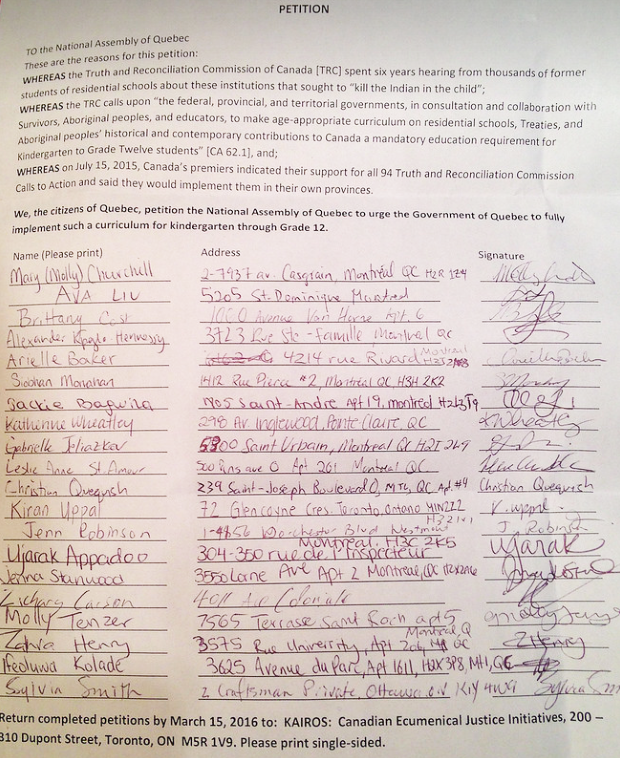 PETITION
TO the National Assembly of Quebec
These are the reasons for this petition:
WHEREAS the Truth and Reconciliation Commission of Canada [TRC] spent six years hearing from thousands of former
students of residential schools about these institutions that sought to "kill the Indian in the child";
WHEREAS the TRC calls upon "the federal, provincial, and territorial governments, in consultation and collaboration with
Survivors, Aboriginal peoples, and educators, to make age-appropriate curriculum on residential schools, Treaties, and
Aboriginal peoples' historical and contemporary contributions to Canada a mandatory education requirement for
Kindergarten to Grade Twelve students" [CA 62.1], and;
WHEREAS on July 15, 2015, Canada's premiers indicated their support for all 94 Truth and Reconciliation Commission
Calls to Action and said they would implement them in their own provinces.
We, the citizens of Quebec, petition the National Assembly of Quebec to urge the Government of Quebec to fully
implement such a curriculum for kindergarten through Grade 12.
Name (Please print) Address Signature
Mary (Molly) Churchill 2-7937 av. Casgrain, Montréal QC
AVA LIU 5205 St. Dominique Montreal
Brittany 1000 Avenue Van Horne Apt. 6
Alexander Hennessy 3723 Rue Ste-famille Montreal QC
Arielle Baker 4214 rue Rivard Montreal
Siobhan Monahan 1412 Rue Pierce #2, Montréal QC, H3H 2K2
Jackie Bagwila 1905 Saint-André Apt 19, montréal
Katherine Wheatley 298 Av. Inglewood, Pointe Claire, QC KWheatley
Gabrielle 5900 Saint Urbain, Montreal QC H2T
Leslie Anne St. Amour 500 Pins ave O Apt 201 Montreal QC
Christian Quequish 239 Saint-Joseph Boulevard O, MTL, QC Apt. #4 Christian Quequish
Kiran Uppal 72 Glencayne Cres. Toronto, Ontario K. Uppal
Jenn Robinson Dorchester Blvd Westmount J. Robinson
Montreal. H3C 2K5
Ujarak Appadoo 304-350 rue de l'Inspecteur Ujarak
Jenna Stanwood 3550 Lorne Ave Apt 2 Montreal, QC
Zichary Carson 4011 Ave Coloniale
Molly Tenzer 7565 Terrasse Saint Roch apt 5
Montreal, Q
Henry 3575 Rue University, Apt QC ZHenry
Ifeoluwa Kolade 3625 Avenue du Parc, Apt 1611, H2X 3P8, Mtl, QC
Sylvia Smith 2 Craftsman Private, Ottawa Sylvia
Return completed petitions by March 15, 2016 to: KAIROS: Canadian Ecumenical Justice Initiatives, 200 –
310 Dupont Street, Toronto, ON M5R 1V9. Please print single-sided.